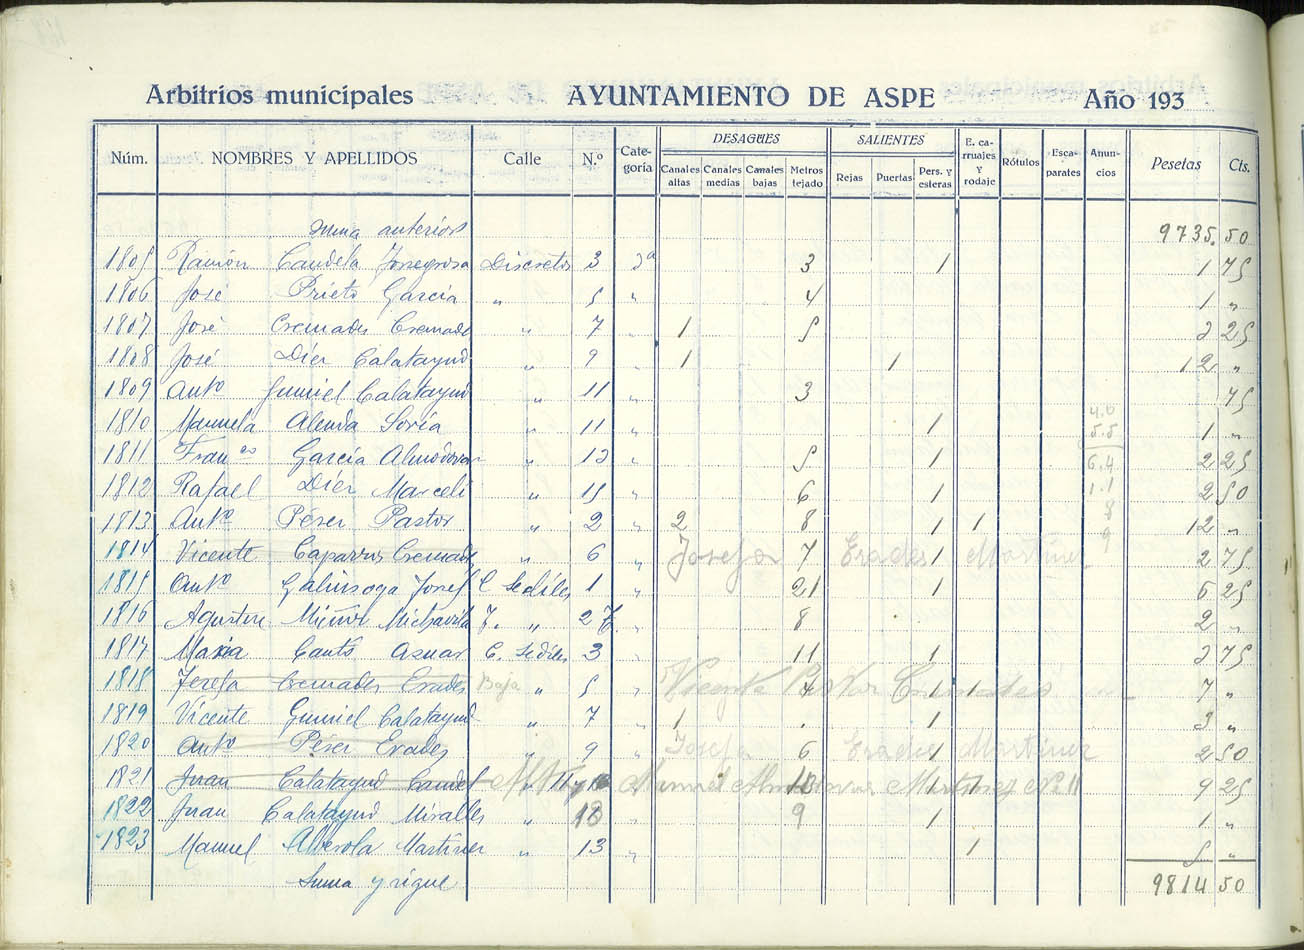 Arbitrios municipales AYUNTAMIENTO DE ASPE Año 193
Núm. NOMBRES Y APELLIDOS Calle N.º Cate-goría DESAGÜES Canales altas Canales medias Canales bajas Metros tejado SALIENTES Rejas Puertas Pers. y esteras E. ca-rruajes y rodaje Rótulos Esca-parates Anun-cios Pesetas Cts.
Suma anterior 9735. 50
1805 Ramón Candela Discretos 3 3ª 3 1 1 75
1806 José Prieto García " 5 " 4 1 "
1807 José Cremades Cremades " 7 " 1 5 2 25
1808 José Díez Calatayud " 9 " 1 1 12 "
1809 Antº Gumiel Calatayud " 11 " 3 75
1810 Manuela Alenda Soria " 11 " 1 1 "
1811 Franco García Almodovar " 13 " 5 1 2 25
1812 Rafael Díez Marceli " 15 " 6 1 2 50
1813 Antº Pérez Pastor " 2 " 2 8 1 1 12 "
1814 Vicente Caparros Cremades " 6 " Josefa 7 Erades 1 Martínez 2 75
1815 Antº Galinsoga C Sediles 1 " 21 1 6 25
1816 Agustín Miñor Michavila 2 " 8 2 "
1817 Maria Cantó Aznar C. Sediles 3 " 11 1 3 75
1818 Josefa Cremades Erades Baja " 5 " Vicente Pastor Cremades 7 1 1 7 "
1819 Vicente Gumiel Calatayud " 7 " 1 1 3 "
1820 Antº Pérez Erades " 9 " Josefa 6 Erades 1 Martínez 2 50
1821 Juan Calatayud " 11 Manuel Martinez Nº 11 9 25
1822 Juan Calatayud Miralles " 13 " 9 1 1 "
1823 Manuel Alberola Martínez " 13 " 1 5 "
Suma y sigue 9814 50